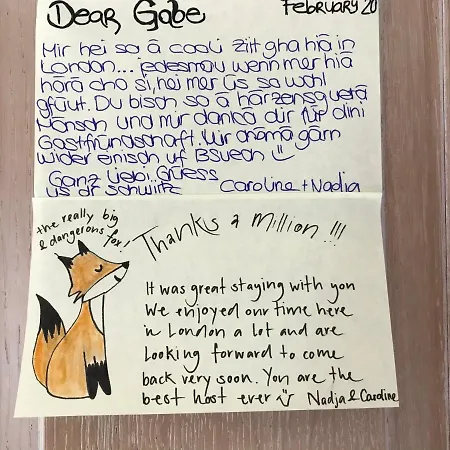 Dear Gabe
February 20
Mir hei so ä cooli Ziit gha hiä in
London... jedesmau wenn mer hiä
härä chö si, hei mer üs so wohl
gfüut. Du bisch so ä härzensguetä
Mönsch und mir dankä dir für dini
Gastfründschaft. Wir chömä gärn
wider einisch uf Bsuech
Ganz liebi Grüess
us dr Schwiitz
Caroline + Nadja
the really big
& dangerous fox!
Thanks a Million !!!
It was great staying with you
We enjoyed our time here
in London a lot and are
Looking forward to come
back very soon. You are the
best host ever
Nadja & Caroline